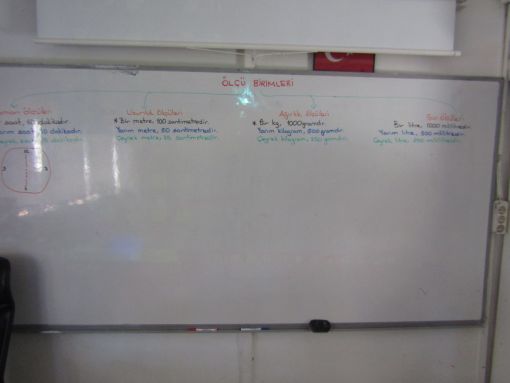 ÖLÇÜ BİRİMLERİ
Ölçüleri
saat, 60 dakikadır.
Yarım saat 30 dakikadır.
saat, 15 dakikadır.
12
9 3
6
Uzunluk Ölçüleri
* Bir metre, 100 santimetredir.
Yarım metre, 50 santimetredir.
Çeyrek metre, 25 santimetredir.
Ağırlık Ölçüleri
* Bir kg, 1000 gramdır.
Yarım kilogram, 500 gramdır.
Çeyrek kilogram, 250 gramdır.
Sıvı Ölçüleri
Bir litre, 1000 mililitredir.
Yarım litre, 500 mililitredir.
Çeyrek litre, 250 mililitredir.